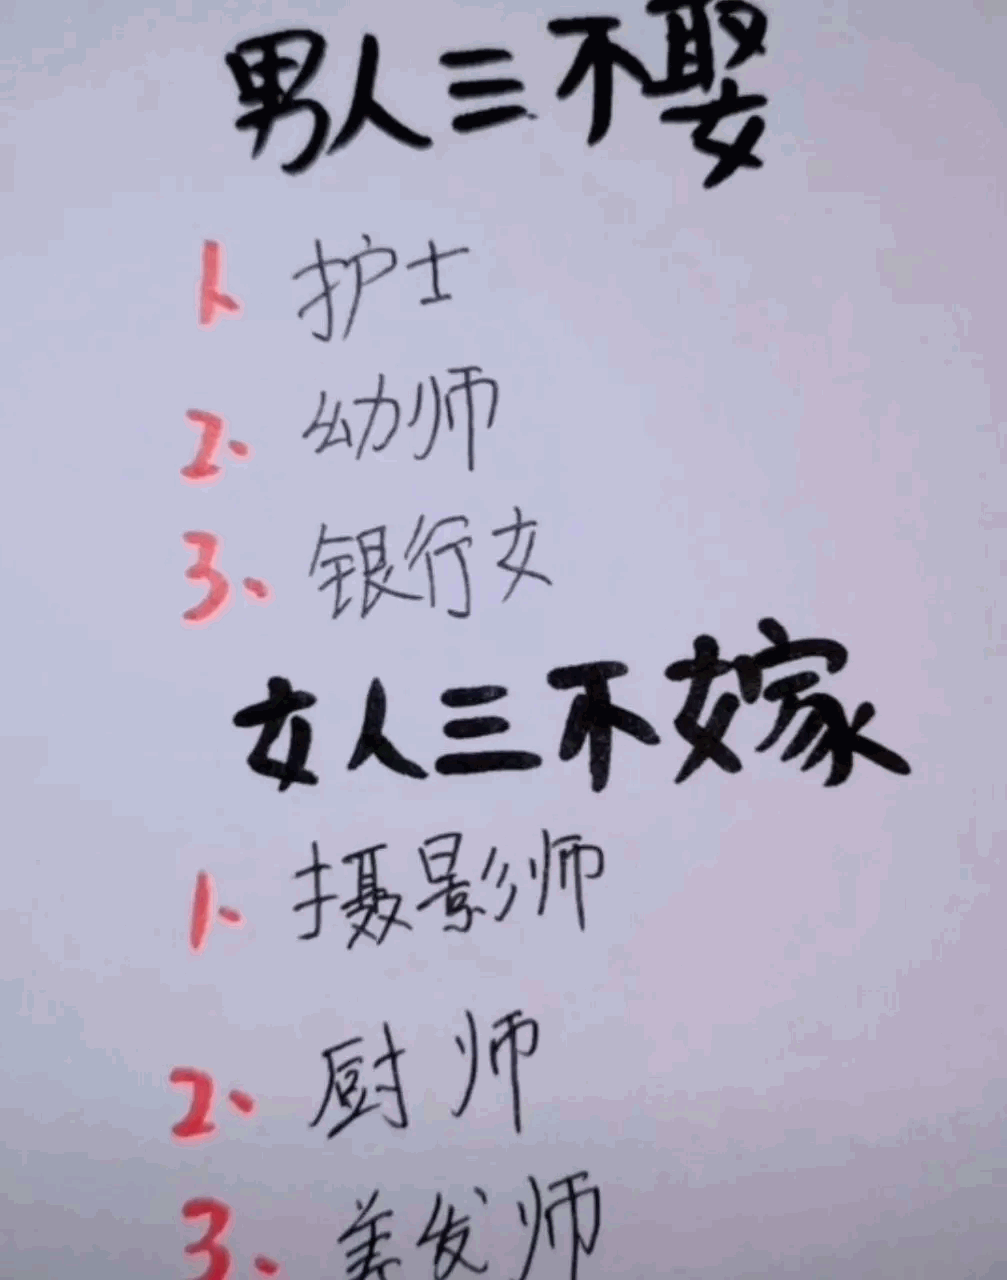 男人三不娶
1、护士
2、幼师
3、银行女
女人三不嫁
1、摄影师
2、厨师
3、美发师